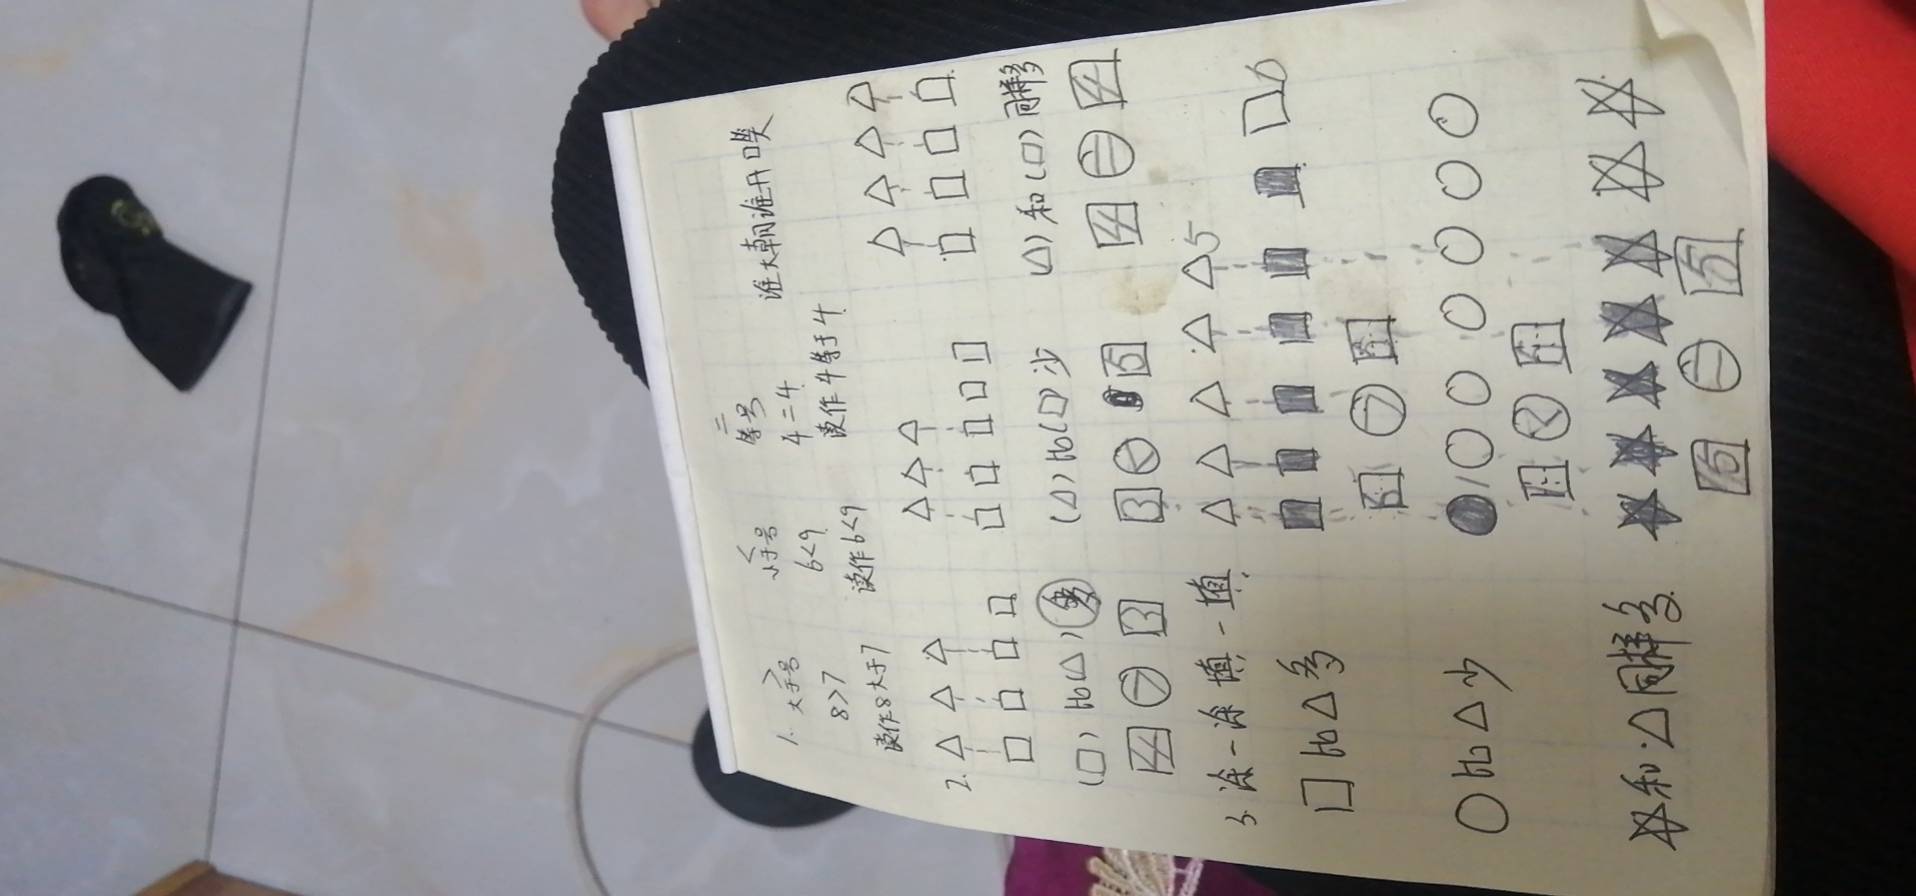 1. > < = 谁大朝谁开口笑
大于号 小于号 等号
8>7 6<9 4=4
读作8大于7 读作6<9 读作4等于4
2. △△△ △△△ △△△△
□□□□ □□□□□ □□□□
(□)比△(多) (△)比(□)少 (△)和(□)同样多
4>3 3<5 4=4
3.涂一涂填一填. △△△△△5
□比△多 □6
6>5
○比△少
1<5
☆和△同样多
5=5